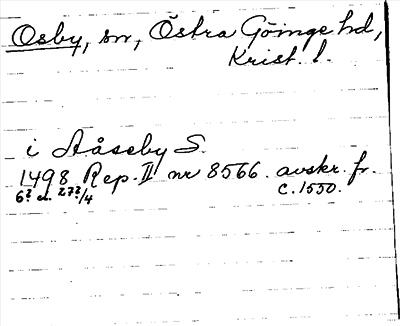 Osby, sn, Östra Göinge hd,
Krist. l.
i Aåseby S.
1498 Rep. II nr 8566. avskr. fr.
6? el. 27?/4 c. 1550.